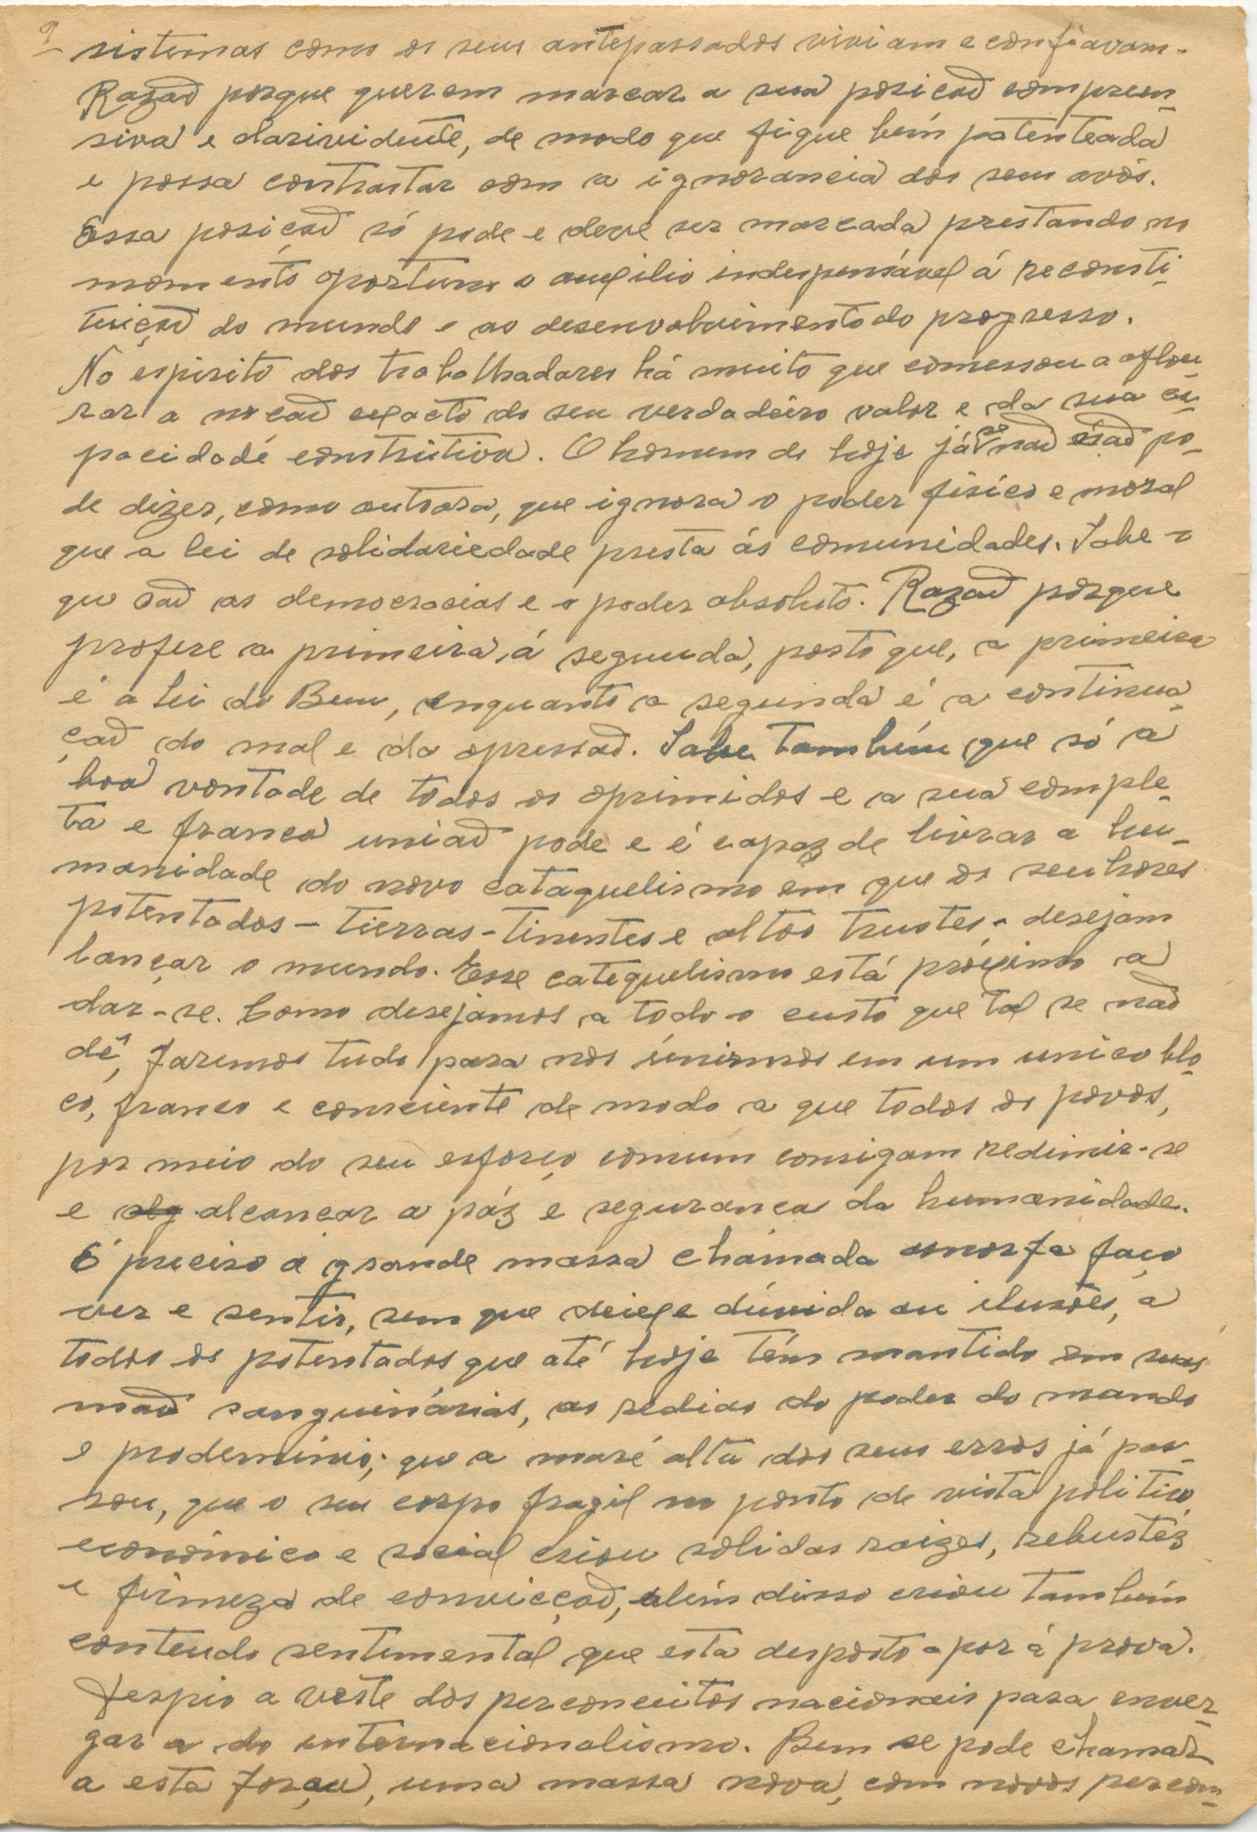 9
sistemas como os seus antepassados viviam e confiavam.
Razaõ porque querem marcar a sua posicaõ compreen-
siva e clarividente, de modo que fique bem patenteada
e possa contrastar com a ignorancia dos seus avós.
Essa posiçaõ só pode e deve ser marcada prestando no
momento oportuno o auxilio indespensável á reconsti-
tuiçaõ do mundo e ao desenvolvimento do progresso.
No espirito dos trabalhadores há muito que comessou a aflou-
rar a nocaõ exacto do seu verdadeiro valor e da sua ca-
pacidade construtiva. O homem de hoje já se naõ po-
de dizer, como outrora, que ignora o poder fisico e moral
que a lei de solidariedade presta ás comunidades. Sabe o
que saõ as democracias e o poder absoluto. Razaõ porque
profere a primeira, á segunda, posto que, a primeira
é a lei do Bem, enquanto a segunda é a continua-
çaõ do mal e da opressaõ. Sabe tambêm que só a
boa vontade de todos os oprimidos e a sua comple-
ta e franca uniaõ pode e é capaz de livrar a hu-
manidade do novo cataquelismo em que os senhores
potentados - tierras-tinentes e altos trustes - desejam
lançar o mundo. Esse catequelismo está próximo a
dar-se. Como desejamos a todo o custo que tal se naõ
dê, faremos tudo para nos únirmos em um unico blo-
co, franco e consciente de modo a que todos os povos,
por meio do seu esforço comum consigam redimir-se
e alcancar a páz e seguranca da humanidade.
É preciso a grande massa chamada amorfa faço
ver e sentir, sem que deixe dúvida ou ilusões, a
todos os potentados que até hoje têm mantido em suas
maõ sanguinárias, as redias do poder do mando
e prodeminio; que a maré alta dos seus erros já pas-
sou, que o seu corpo fragil no ponto de vista politico,
económico e social criou solidas raizes, rebustêz
e firmeza de convicçaõ, alêm disso criou tambêm
conteudo sentimental que esta desposto a por á prova.
Despio a veste dos perconceitos nacionais para enver-
gar a do internacionalismo. Bem se pode chamar
a esta força, uma massa nova, com novos percon-